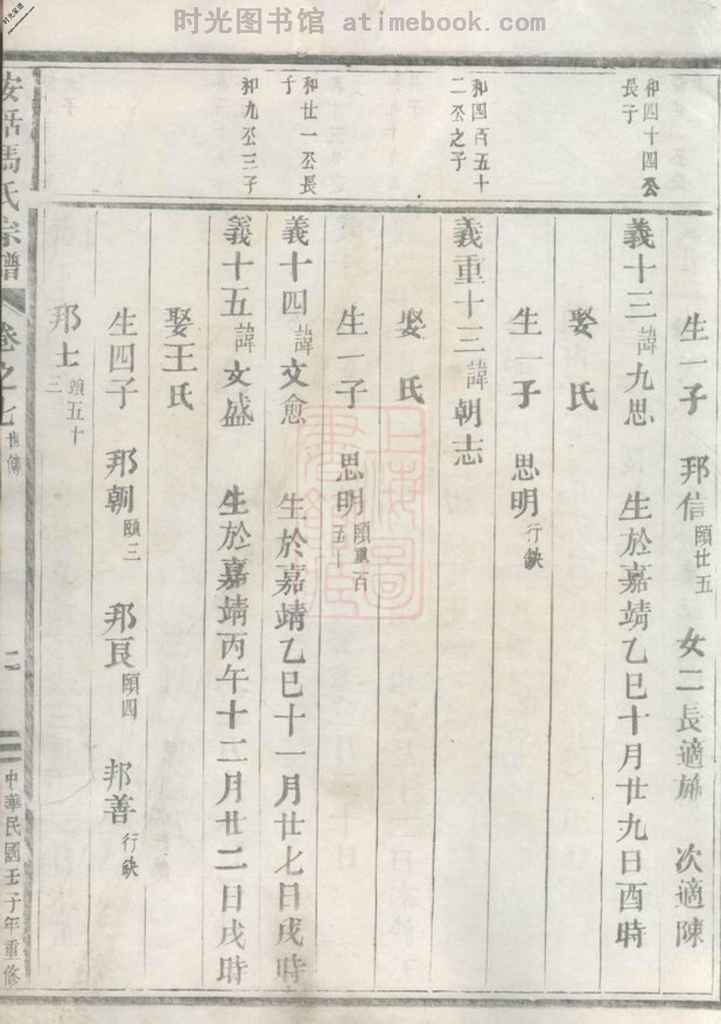 时光图书馆 atimebook.com
时光图书馆
生一子 邦信頤廿五 女二長適 次適陳
和四十四公長子
義十三諱九思 生於嘉靖乙巳十月廿九日酉時
娶 氏
生一子 思明行缺
和四百五十二公之子
義重十三諱朝志
娶 氏
生一子 思明頤重百五十
和廿一公長子
義十四諱文愈 生於嘉靖乙巳十一月廿七日戌時
和九公三子
義十五諱文盛 生於嘉靖丙午十二月廿二日戌時
娶王氏
生四子 邦朝頤三 邦良頤四 邦善行缺
邦士頤五十三
馬氏宗譜 卷之七 世傳 二 中華民國壬子年重修